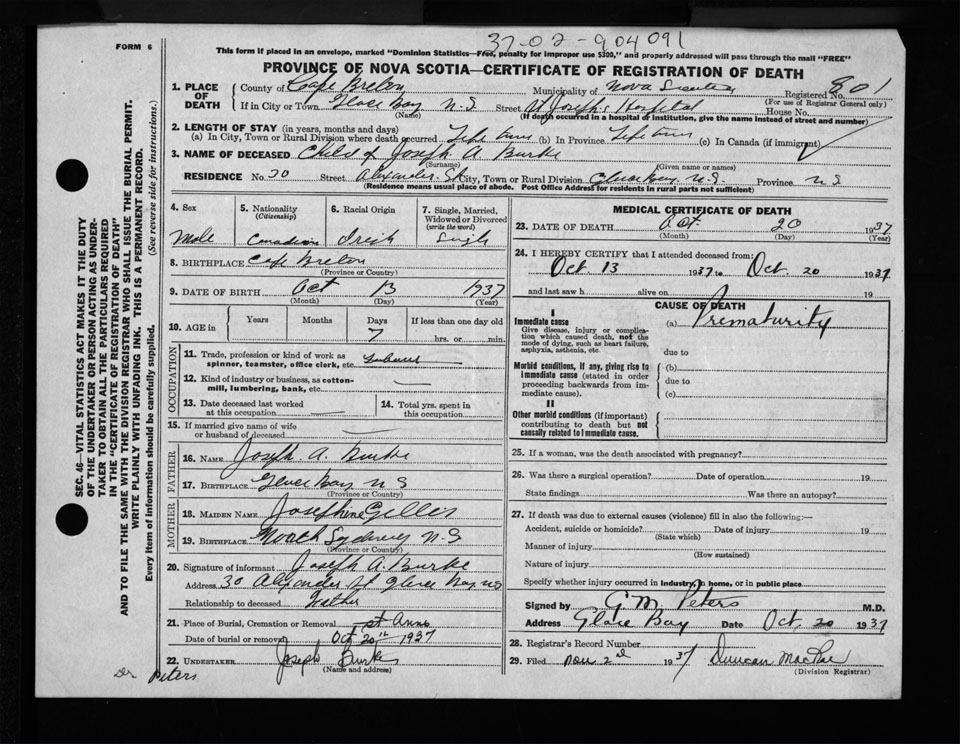 37-02-904091
FORM 6
This form if placed in an envelope, marked "Dominion Statistics—Free, penalty for improper use $300," and properly addressed will pass through the mail "FREE"
PROVINCE OF NOVA SCOTIA—CERTIFICATE OF REGISTRATION OF DEATH
1. PLACE OF DEATH County of Cape Breton Municipality of Nova Scotia Registered No. 801
(For use of Registrar General only)
If in City or Town Glace Bay N.S Street St Joseph's Hospital House No.
(Name) (If death occurred in a hospital or institution, give the name instead of street and number)
2. LENGTH OF STAY (in years, months and days)
(a) In City, Town or Rural Division where death occurred Life time (b) In Province Life time (c) In Canada (if immigrant)
3. NAME OF DECEASED Child of Joseph A. Burke
(Surname) (Given name or names)
RESIDENCE No. 30 Street Alexander St City, Town or Rural Division Glace Bay N.S. Province N S
(Residence means usual place of abode. Post Office Address for residents in rural parts not sufficient)
4. Sex 5. Nationality (Citizenship) 6. Racial Origin 7. Single, Married, Widowed or Divorced (write the word)
Male Canadian Irish Single
8. BIRTHPLACE Cape Breton
(Province or Country)
9. DATE OF BIRTH Oct 13 1937
(Month) (Day) (Year)
10. AGE in Years Months Days If less than one day old
7 hrs. or min.
OCCUPATION
11. Trade, profession or kind of work as spinner, teamster, office clerk, etc.
12. Kind of industry or business, as cotton-mill, lumbering, bank, etc.
13. Date deceased last worked at this occupation 14. Total yrs. spent in this occupation
15. If married give name of wife or husband of deceased
FATHER
16. NAME Joseph A. Burke
17. BIRTHPLACE Glace Bay N S
(Province or Country)
MOTHER
18. MAIDEN NAME Josephine Gillis
19. BIRTHPLACE North Sydney N.S
(Province or Country)
20. Signature of informant Joseph A. Burke
Address 30 Alexander St Glace Bay NS
Relationship to deceased Father
21. Place of Burial, Cremation or Removal St Anns
Date of burial or removal Oct 20th 1937
22. UNDERTAKER Joseph Burke
(Name and address)
Dr Peters
MEDICAL CERTIFICATE OF DEATH
23. DATE OF DEATH Oct. 20 1937
(Month) (Day) (Year)
24. I HEREBY CERTIFY that I attended deceased from:
Oct 13 1937 to Oct. 20 1937
and last saw h alive on 19
CAUSE OF DEATH
I
Immediate cause (a) Prematurity
Give disease, injury or complication which caused death, not the mode of dying, such as heart failure, asphyxia, asthenia, etc.
due to
Morbid conditions, if any, giving rise to immediate cause (stated in order proceeding backwards from immediate cause).
(b)
due to
(c)
II
Other morbid conditions (if important) contributing to death but not causally related to immediate cause.
25. If a woman, was the death associated with pregnancy?
26. Was there a surgical operation? Date of operation 19
State findings Was there an autopsy?
27. If death was due to external causes (violence) fill in also the following:—
Accident, suicide or homicide? Date of injury 19
(State which)
Manner of injury
(How sustained)
Nature of injury
Specify whether injury occurred in industry, in home, or in public place
Signed by G M. Peters M.D.
Address Glace Bay Date Oct. 20 1937
28. Registrar's Record Number
29. Filed Nov 2nd 1937 Duncan MacRae
(Division Registrar)
SEC. 46—VITAL STATISTICS ACT MAKES IT THE DUTY
OF THE UNDERTAKER OR PERSON ACTING AS UNDER-
TAKER TO OBTAIN ALL THE PARTICULARS REQUIRED
IN THE "CERTIFICATE OF REGISTRATION OF DEATH"
AND TO FILE THE SAME WITH THE DIVISION REGISTRAR WHO SHALL ISSUE THE BURIAL PERMIT.
WRITE PLAINLY WITH UNFADING INK. THIS IS A PERMANENT RECORD.
Every item of information should be carefully supplied. (See reverse side for instructions.)